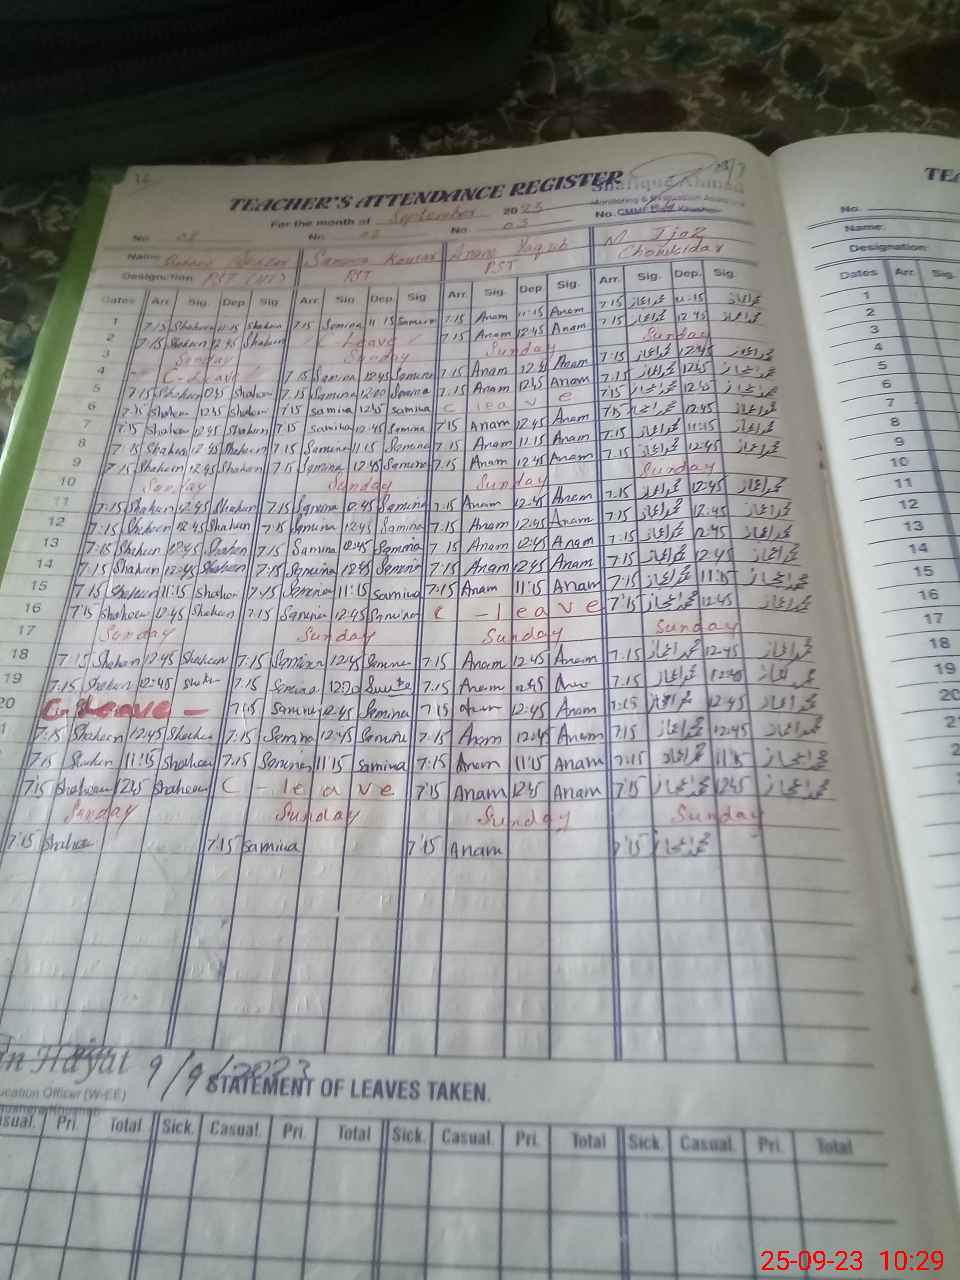 TEACHER'S ATTENDANCE REGISTER
For the month of September 2023
No. No. 02 No. 03 No.
Name Samina Kousar Anam Yaqub M Ijaz
Designation PST PST Chowkidar
Dates Arr. Sig. Dep. Sig. Arr. Sig. Dep. Sig. Arr. Sig. Dep. Sig. Arr. Sig. Dep. Sig.
1 7:15 Shaheen 11:15 Shaheen 7:15 Samina 11:15 Samina 7:15 Anam 11:15 Anam 7:15 محمد اعجاز 11:15 محمد اعجاز
2 7:15 Shaheen 12:45 Shaheen C-Leave 7:15 Anam 12:45 Anam 7:15 محمد اعجاز 12:45 محمد اعجاز
3 Sunday Sunday Sunday Sunday
4 C-Leave 7:15 Samina 12:45 Samina 7:15 Anam 12:45 Anam 7:15 محمد اعجاز 12:45 محمد اعجاز
5 7:15 Shaheen 12:45 Shaheen 7:15 Samina Samina 7:15 Anam 12:45 Anam 7:15 محمد اعجاز 12:45 محمد اعجاز
6 7:15 Shaheen 12:45 Shaheen 7:15 Samina 12:45 Samina C leave 7:15 محمد اعجاز 12:45 محمد اعجاز
7 7:15 Shaheen 12:45 Shaheen 7:15 Samina 12:45 Samina 7:15 Anam 12:45 Anam 7:15 محمد اعجاز 12:45 محمد اعجاز
8 7:15 Shaheen 12:45 Shaheen 7:15 Samina 11:15 Samina 7:15 Anam 11:15 Anam 7:15 محمد اعجاز 11:15 محمد اعجاز
9 7:15 Shaheen 12:45 Shaheen 7:15 Samina 12:45 Samina 7:15 Anam 12:45 Anam 7:15 محمد اعجاز 12:45 محمد اعجاز
10 Sunday Sunday Sunday Sunday
11 7:15 Shaheen 12:45 Shaheen 7:15 Samina 12:45 Samina 7:15 Anam 12:45 Anam 7:15 محمد اعجاز 12:45 محمد اعجاز
12 7:15 Shaheen 12:45 Shaheen 7:15 Samina 12:45 Samina 7:15 Anam 12:45 Anam 7:15 محمد اعجاز 12:45 محمد اعجاز
13 7:15 Shaheen 12:45 Shaheen 7:15 Samina 12:45 Samina 7:15 Anam 12:45 Anam 7:15 محمد اعجاز 12:45 محمد اعجاز
14 7:15 Shaheen 12:45 Shaheen 7:15 Samina 12:45 Samina 7:15 Anam 12:45 Anam 7:15 محمد اعجاز 12:45 محمد اعجاز
15 7:15 Shaheen 11:15 Shaheen 7:15 Samina 11:15 Samina 7:15 Anam 11:15 Anam 7:15 محمد اعجاز 11:15 محمد اعجاز
16 7:15 Shaheen 12:45 Shaheen 7:15 Samina 12:45 Samina C - leave 7:15 محمد اعجاز 12:45 محمد اعجاز
17 Sunday Sunday Sunday Sunday
18 7:15 Shaheen 12:45 Shaheen 7:15 Samina 12:45 Samina 7:15 Anam 12:45 Anam 7:15 محمد اعجاز 12:45 محمد اعجاز
19 7:15 Shaheen 12:45 7:15 Samina 7:15 Anam 12:45 7:15 محمد اعجاز 12:45 محمد اعجاز
20 C-Leave - 7:15 Samina 12:45 Samina 7:15 Anam 12:45 Anam 7:15 محمد اعجاز 12:45 محمد اعجاز
7:15 Shaheen 12:45 Shaheen 7:15 Samina 12:45 Samina 7:15 Anam 12:45 Anam 7:15 محمد اعجاز 12:45 محمد اعجاز
7:15 Shaheen 11:15 Shaheen 7:15 Samina 11:15 Samina 7:15 Anam 11:15 Anam 7:15 محمد اعجاز 11:15 محمد اعجاز
7:15 Shaheen 12:45 Shaheen C - leave 7:15 Anam 12:45 Anam 7:15 محمد اعجاز 12:45 محمد اعجاز
Sunday Sunday Sunday Sunday
7:15 Shaheen 7:15 Samina 7:15 Anam 7:15 محمد اعجاز
Hayat 9/9/2023
STATEMENT OF LEAVES TAKEN.
Pri. Total Sick. Casual. Pri. Total Sick. Casual. Pri. Total Sick. Casual. Pri. Total
No.
Name:
Designation
Dates Arr. Sig.
1
2
3
4
5
6
7
8
9
10
11
12
13
14
15
16
17
18
19
20
25-09-23 10:29